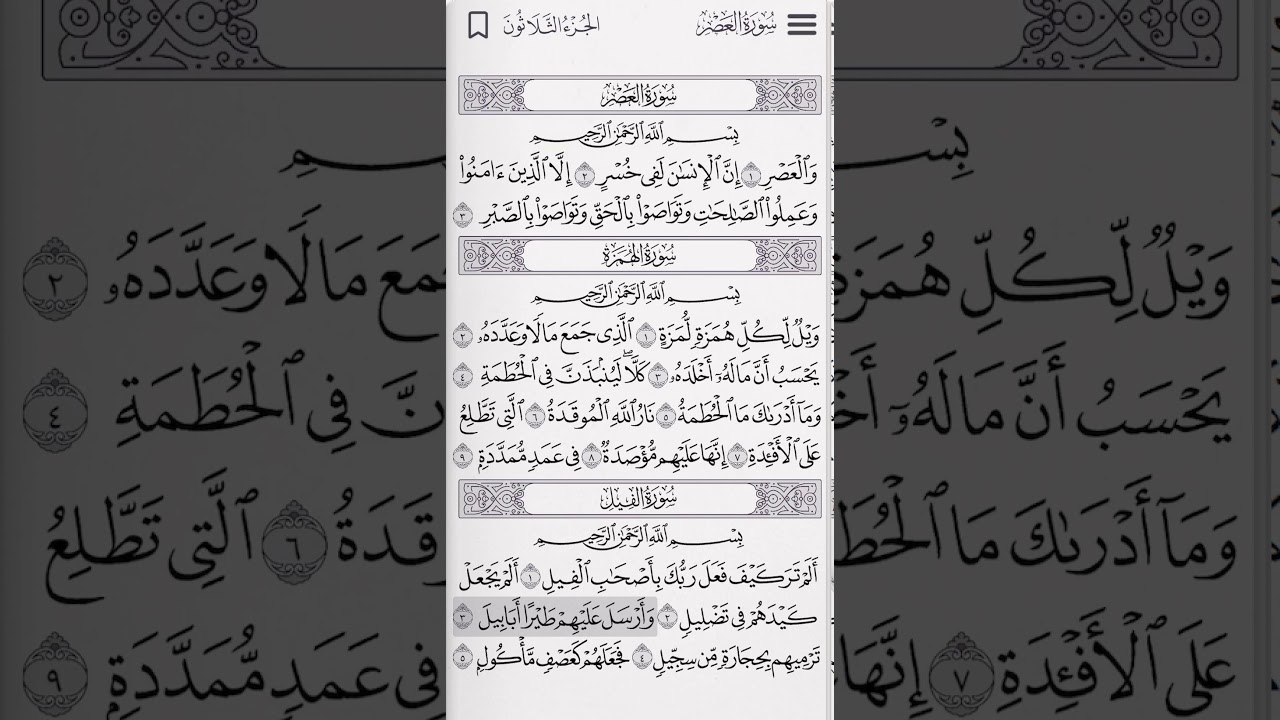 سُورَةُ العَصْرِ
الجُزْءُ الثَّلَاثُونَ
سُورَةُ العَصْرِ
بِسْمِ ٱللَّهِ ٱلرَّحْمَٰنِ ٱلرَّحِيمِ
وَٱلْعَصْرِ ١ إِنَّ ٱلْإِنسَٰنَ لَفِى خُسْرٍ ٢ إِلَّا ٱلَّذِينَ ءَامَنُوا۟
وَعَمِلُوا۟ ٱلصَّٰلِحَٰتِ وَتَوَاصَوْا۟ بِٱلْحَقِّ وَتَوَاصَوْا۟ بِٱلصَّبْرِ ٣
سُورَةُ الهُمَزَةِ
بِسْمِ ٱللَّهِ ٱلرَّحْمَٰنِ ٱلرَّحِيمِ
وَيْلٌ لِّكُلِّ هُمَزَةٍ لُّمَزَةٍ ١ ٱلَّذِى جَمَعَ مَالًا وَعَدَّدَهُۥ ٢
يَحْسَبُ أَنَّ مَالَهُۥٓ أَخْلَدَهُۥ ٣ كَلَّا ۖ لَيُنۢبَذَنَّ فِى ٱلْحُطَمَةِ ٤
وَمَآ أَدْرَىٰكَ مَا ٱلْحُطَمَةُ ٥ نَارُ ٱللَّهِ ٱلْمُوقَدَةُ ٦ ٱلَّتِى تَطَّلِعُ
عَلَى ٱلْأَفْـِٔدَةِ ٧ إِنَّهَا عَلَيْهِم مُّؤْصَدَةٌ ٨ فِى عَمَدٍ مُّمَدَّدَةٍۭ ٩
سُورَةُ الفِيلِ
بِسْمِ ٱللَّهِ ٱلرَّحْمَٰنِ ٱلرَّحِيمِ
أَلَمْ تَرَ كَيْفَ فَعَلَ رَبُّكَ بِأَصْحَٰبِ ٱلْفِيلِ ١ أَلَمْ يَجْعَلْ
كَيْدَهُمْ فِى تَضْلِيلٍ ٢ وَأَرْسَلَ عَلَيْهِمْ طَيْرًا أَبَابِيلَ ٣
تَرْمِيهِم بِحِجَارَةٍ مِّن سِجِّيلٍ ٤ فَجَعَلَهُمْ كَعَصْفٍ مَّأْكُولٍۭ ٥